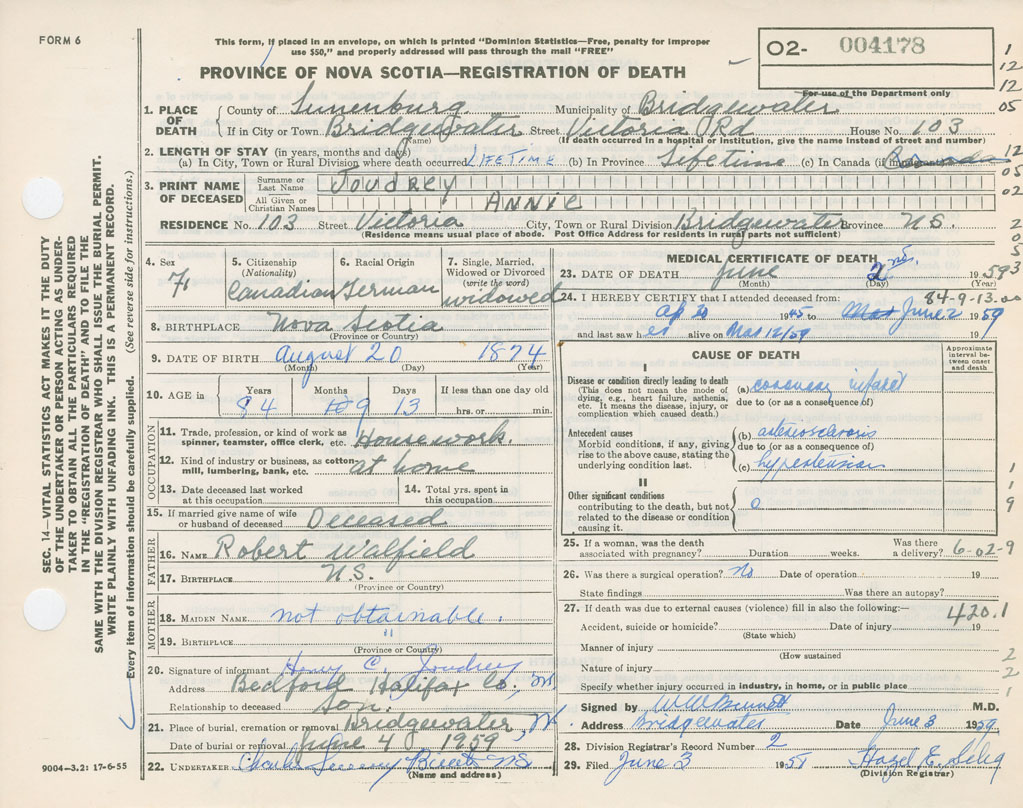 FORM 6
This form, if placed in an envelope, on which is printed "Dominion Statistics—Free, penalty for improper
use $50," and properly addressed will pass through the mail "FREE"
O2- 004178
For use of the Department only
PROVINCE OF NOVA SCOTIA—REGISTRATION OF DEATH
1. PLACE OF DEATH { County of Lunenburg Municipality of Bridgewater
If in City or Town Bridgewater Street Victoria Rd House No. 103
(Name) (If death occurred in a hospital or institution, give the name instead of street and number)
2. LENGTH OF STAY (in years, months and days)
(a) In City, Town or Rural Division where death occurred LIFETIME (b) In Province Lifetime (c) In Canada (if immigrant)
3. PRINT NAME OF DECEASED
Surname or Last Name Joudrey
All Given or Christian Names ANNIE
RESIDENCE No. 103 Street Victoria City, Town or Rural Division Bridgewater Province N.S.
(Residence means usual place of abode. Post Office Address for residents in rural parts not sufficient)
4. Sex F
5. Citizenship (Nationality) Canadian
6. Racial Origin German
7. Single, Married, Widowed or Divorced (write the word) widowed
8. BIRTHPLACE Nova Scotia
(Province or Country)
9. DATE OF BIRTH August 20 1874
(Month) (Day) (Year)
10. AGE in Years Months Days If less than one day old
84 9 13 hrs. or min.
OCCUPATION
11. Trade, profession, or kind of work as
spinner, teamster, office clerk, etc. Housework.
12. Kind of industry or business, as cotton
mill, lumbering, bank, etc. at home
13. Date deceased last worked
at this occupation
14. Total yrs. spent in
this occupation
15. If married give name of wife
or husband of deceased Deceased
FATHER
16. NAME Robert Walfield
17. BIRTHPLACE N.S.
(Province or Country)
MOTHER
18. MAIDEN NAME not obtainable.
19. BIRTHPLACE "
(Province or Country)
20. Signature of informant Henry C. Joudrey
Address Bedford Halifax Co., NS
Relationship to deceased Son.
21. Place of burial, cremation or removal Bridgewater, NS
Date of burial or removal June 4 1959
22. UNDERTAKER NS
(Name and address)
MEDICAL CERTIFICATE OF DEATH
23. DATE OF DEATH June 2nd. 1959
(Month) (Day) (Year)
84-9-13.00
24. I HEREBY CERTIFY that I attended deceased from:
Ap 20 1945 to June 2 1959
and last saw her alive on Mar 12/59 19
CAUSE OF DEATH
Approximate interval between onset and death
I
Disease or condition directly leading to death
(This does not mean the mode of
dying, e.g., heart failure, asthenia,
etc. It means the disease, injury, or
complication which caused death.)
(a) coronary infarct
due to (or as a consequence of)
Antecedent causes
Morbid conditions, if any, giving
rise to the above cause, stating the
underlying condition last.
(b) arteriosclerosis
due to (or as a consequence of)
(c) hypertension
II
Other significant conditions
contributing to the death, but not
related to the disease or condition
causing it.
0
25. If a woman, was the death
associated with pregnancy? Duration weeks. Was there a delivery? 6-02-9
26. Was there a surgical operation? No Date of operation 19
State findings Was there an autopsy?
27. If death was due to external causes (violence) fill in also the following:— 420.1
Accident, suicide or homicide? Date of injury 19
(State which)
Manner of injury
(How sustained
Nature of injury
Specify whether injury occurred in industry, in home, or in public place
Signed by W W Bennett M.D.
Address Bridgewater Date June 3 1959.
28. Division Registrar's Record Number 2
29. Filed June 3 1959 Hazel E. Selig
(Division Registrar)
SEC. 14—VITAL STATISTICS ACT MAKES IT THE DUTY
OF THE UNDERTAKER OR PERSON ACTING AS UNDER-
TAKER TO OBTAIN ALL THE PARTICULARS REQUIRED
IN THE "REGISTRATION OF DEATH" AND TO FILE THE
SAME WITH THE DIVISION REGISTRAR WHO SHALL ISSUE THE BURIAL PERMIT.
WRITE PLAINLY WITH UNFADING INK. THIS IS A PERMANENT RECORD.
Every item of information should be carefully supplied. (See reverse side for instructions.)
9004-3.2: 17-6-55
1
12
12
05
12
05
02
2
0
5
3
1
1
9
2
2
1